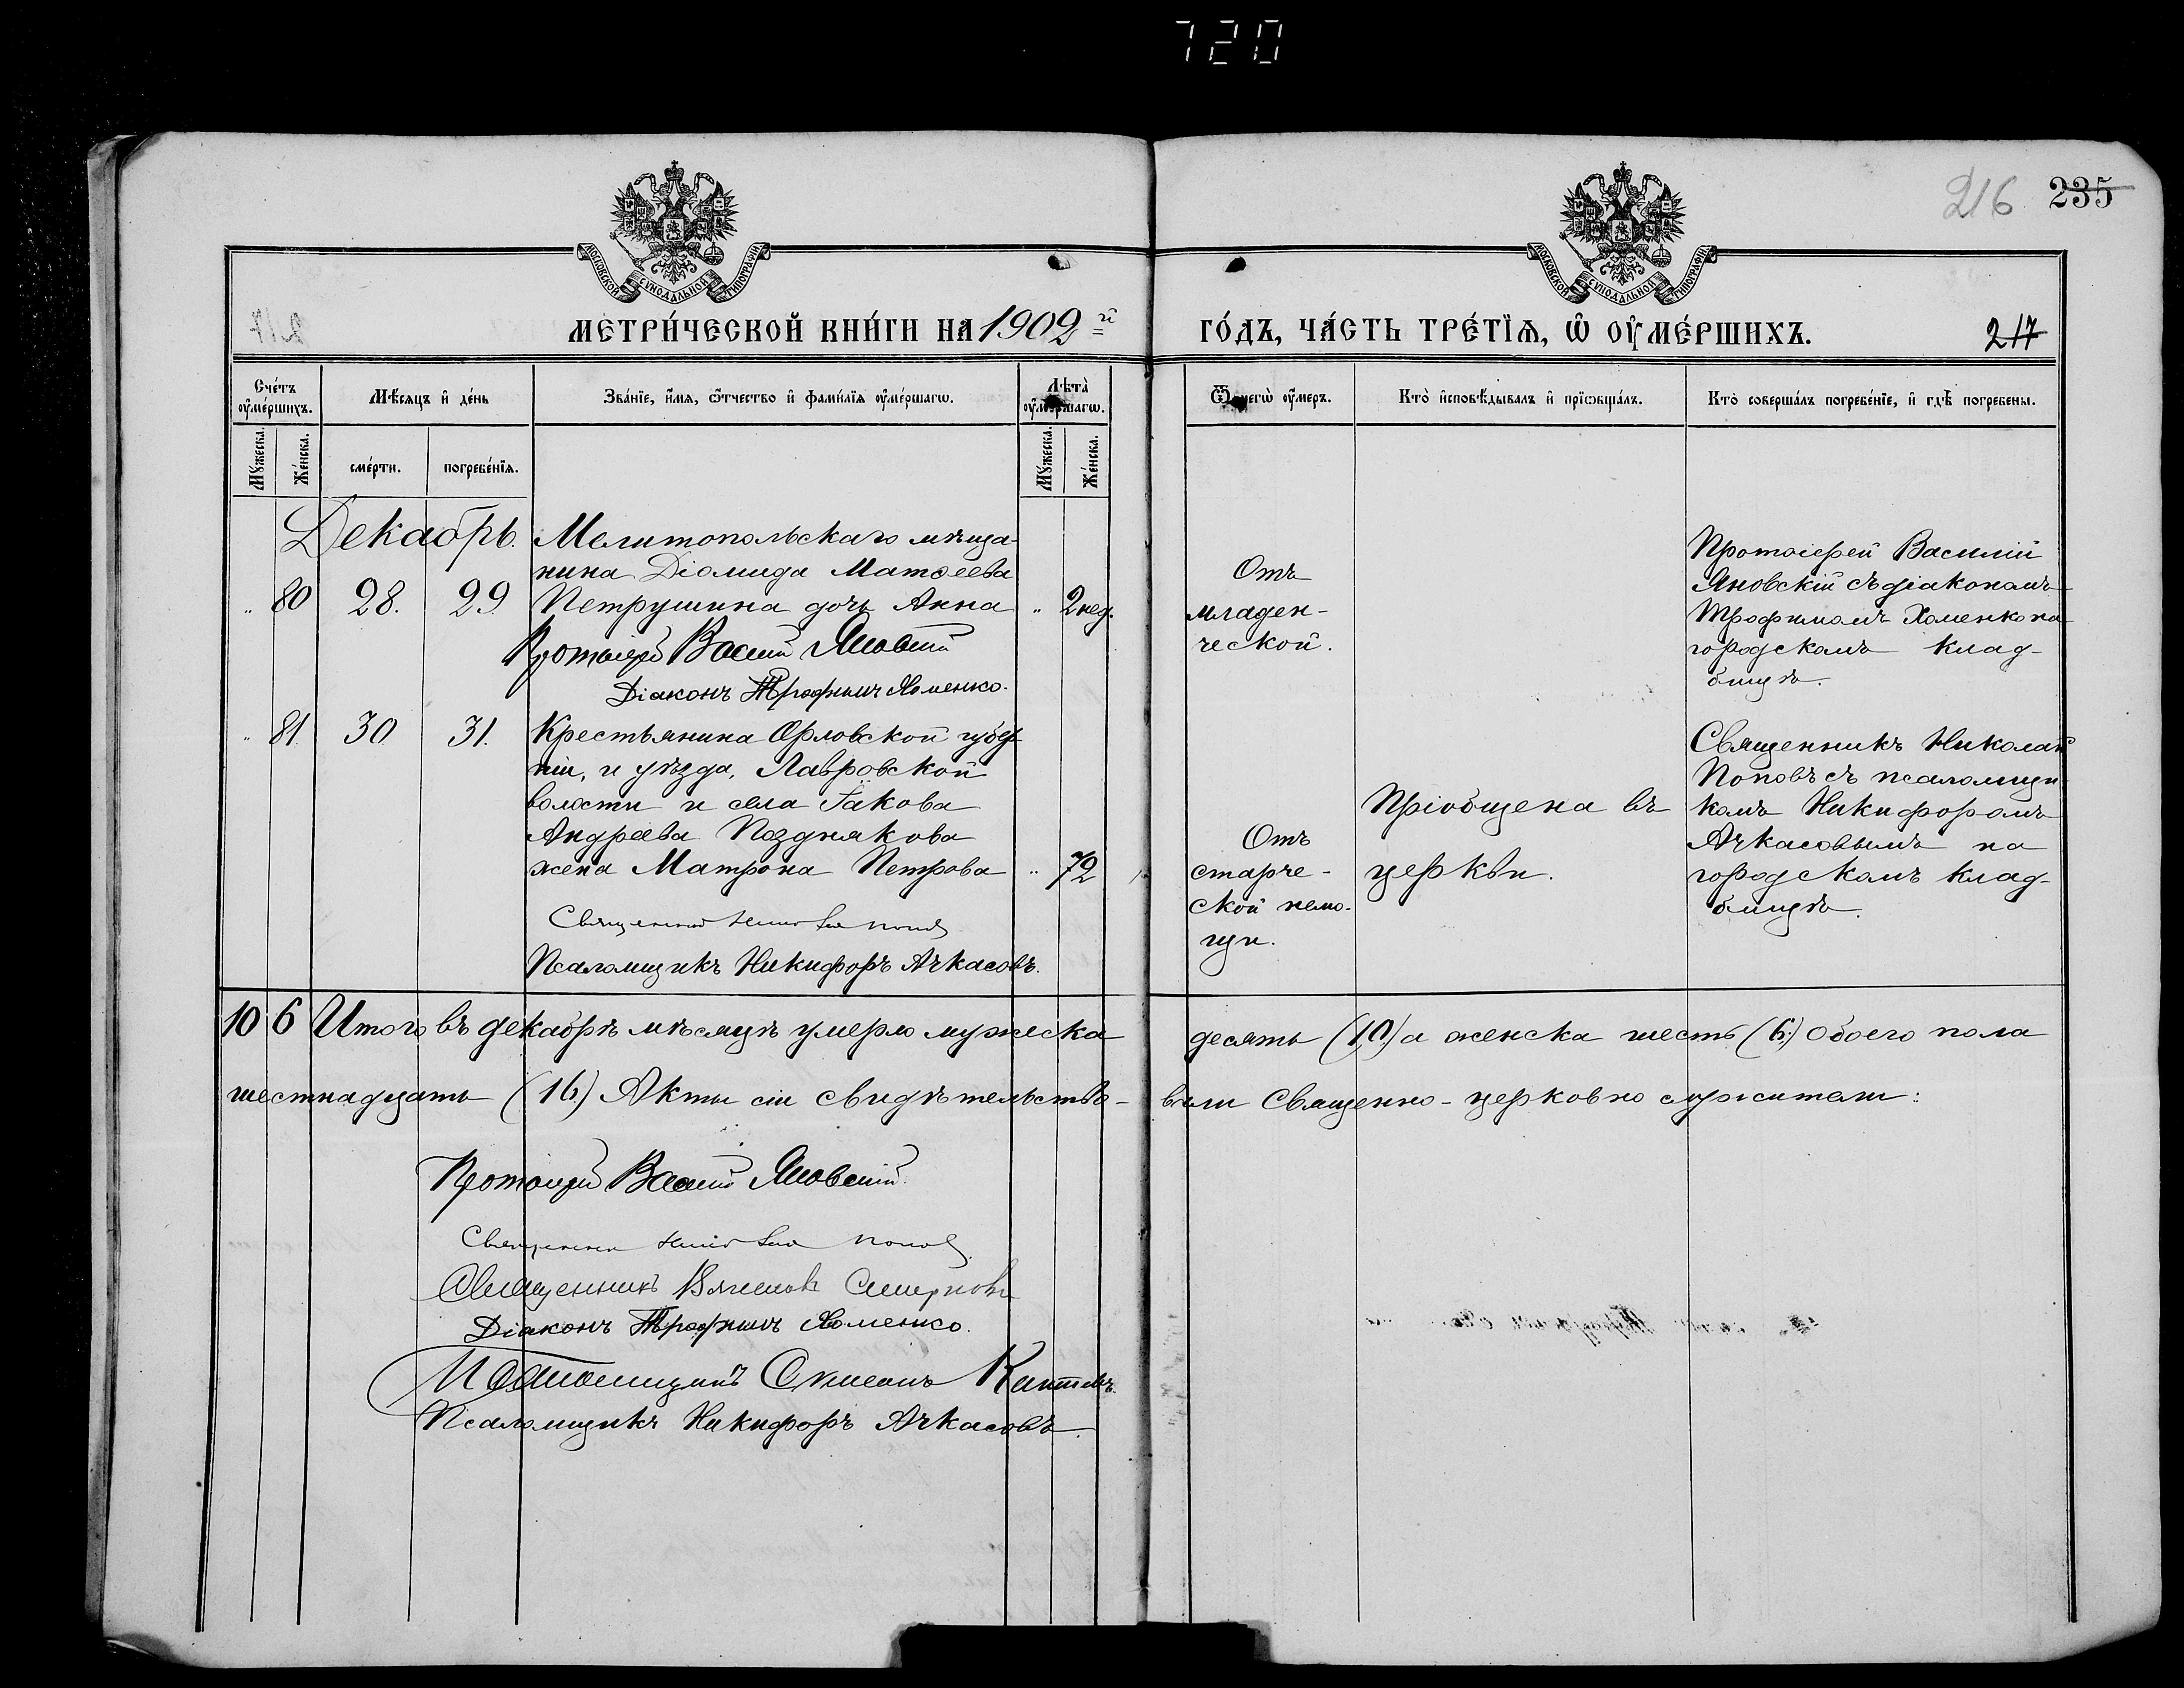 720
216 235
МОСКОВСКОЙ СѴНОДАЛЬНОЙ ТИПОГРАФІИ
МОСКОВСКОЙ СѴНОДАЛЬНОЙ ТИПОГРАФІИ
МЕТРИ́ЧЕСКОЙ КНИ́ГИ НА 1909 й ГО́ДЪ, ЧА́СТЬ ТРЕ́ТЇѦ, Ѡ ОУМЕ́РШИХЪ. 217
Сче́тъ оуме́ршихъ.
Мѣ́сѧцъ и де́нь
Зва́нїе, и́мѧ, ѻ́тчество и фами́лїѧ оуме́ршагѡ.
Лѣта̀ оуме́ршагѡ.
Ѿ чегѡ̀ оу́меръ.
Кто̀ исповѣ́дывалъ и прїѡбща́лъ.
Кто̀ соверша́лъ погребе́нїе, и гдѣ̀ погребены.
Мꙋ́жеска.
Же́нска.
сме́рти.
погребе́нїѧ.
Мꙋ́жеска.
Же́нска.
Декабрь.
" 80 28. 29
Мелитопольскаго мѣща-
нина Діомида Матѳеева
Петрушина дочь Анна " 2 нед.
Протоіерей Василій Яновскій
Діаконъ Трофимъ Хоменко.
Отъ
младен-
ческой.
Протоіерей Василій
Яновскій съ діакономъ
Трофимомъ Хоменко на
городскомъ клад-
бищѣ.
" 81. 30 31.
Крестьянина Орловской губер-
ніи, и уѣзда, Лавровской
волости и села Іакова
Андреева Позднякова
жена Матрона Петрова " 72
Священникъ Николай Поповъ
Псаломщикъ Никифоръ Ачкасовъ.
Отъ
старче-
ской немо-
щи.
Пріобщена въ
церкви.
Священникъ Николай
Поповъ съ псаломщи-
комъ Никифоромъ
Ачкасовымъ на
городскомъ клад-
бищѣ.
10 6 Итого въ декабрѣ мѣсяцѣ умерло мужеска десять (10.) а женска шесть (6.) Обоего пола
шестнадцать (16.) Акты сіи свидѣтельство- вали Священно-церковно служители:
Протоіерей Василій Яновскій.
Священникъ Николай Поповъ.
Священникъ Смирновъ
Діаконъ Трофимъ Хоменко.
Псаломщикъ
Псаломщикъ Никифоръ Ачкасовъ.